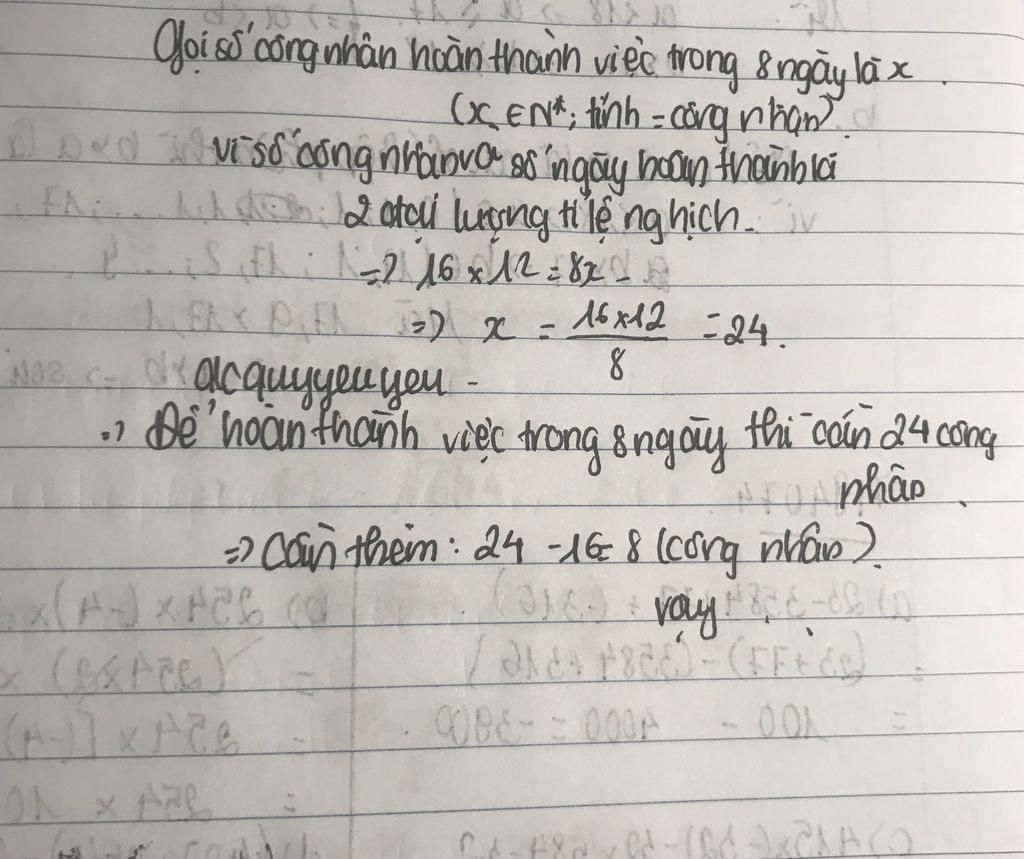 Gọi số công nhân hoàn thành việc trong 8 ngày là x.
(x ∈ N*; tính = công nhân).
vì số công nhân và số ngày hoàn thành là
2 đại lượng tỉ lệ nghịch.
=> 16 x 12 = 8x
=> x = 16x12 / 8 = 24.
qlcquyyeuyeu -
=> Để hoàn thành việc trong 8 ngày thì cần 24 công
nhân.
=> Cần thêm: 24 - 16 = 8 (công nhân).
vậy . .